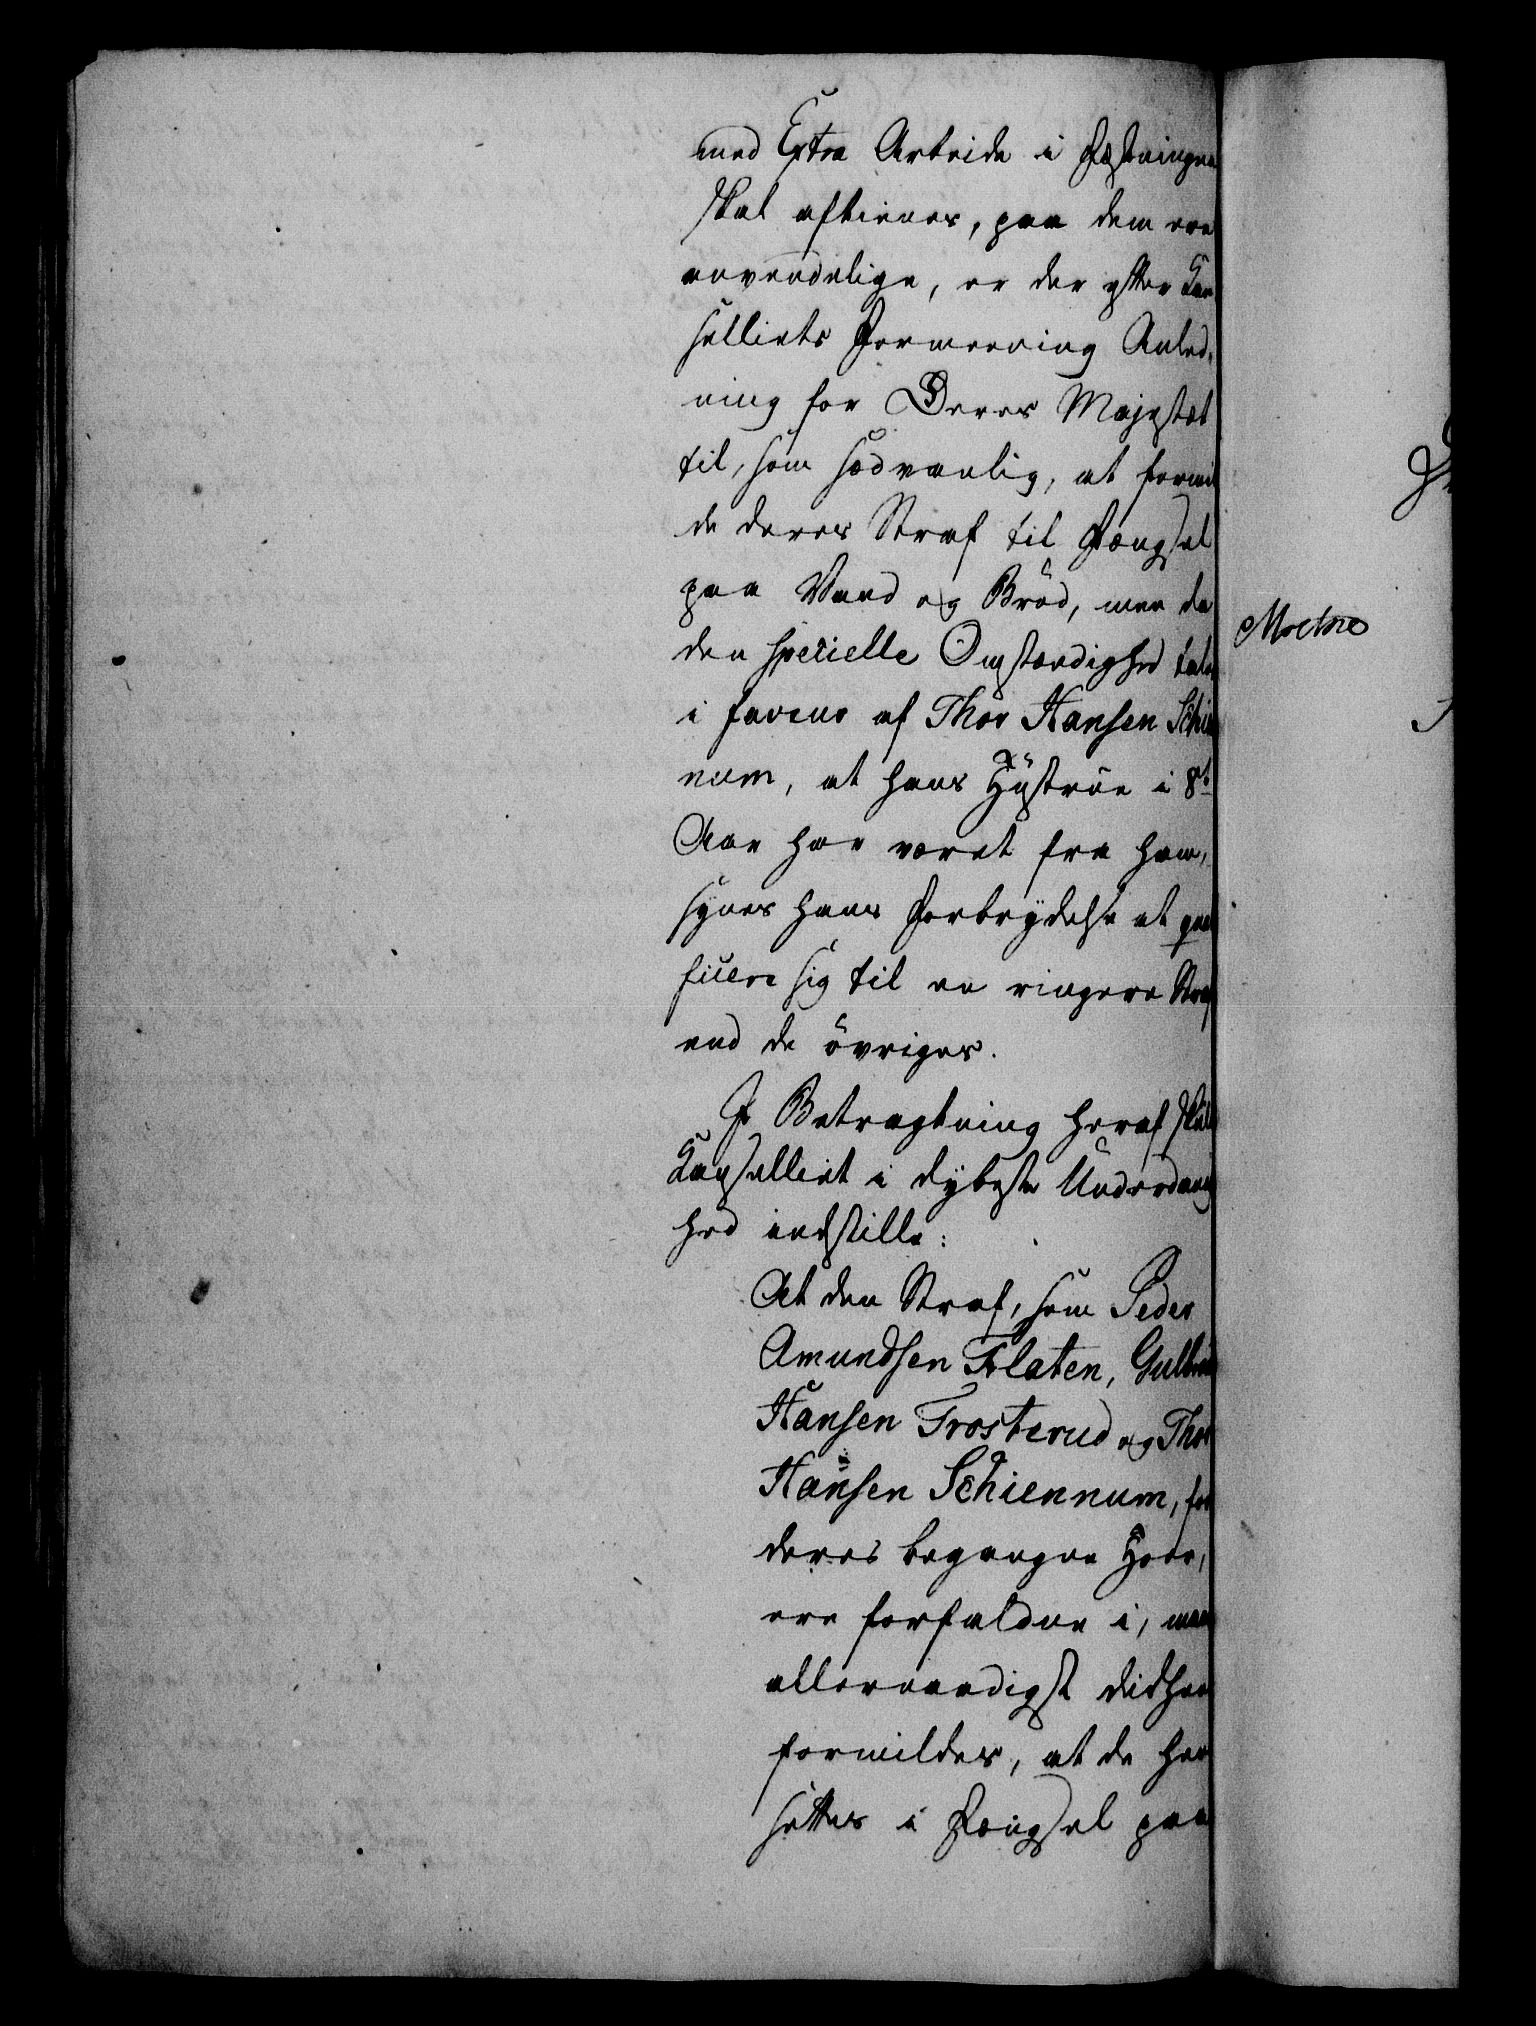 med Extra Arbeide i Fæstningen
skal aftienes, paa dem ere
anvendelige, er der efter Kan
celliets Formeening Anled-
ning for Deres Majestæt
til, som sædvanlig, at formil
de deres Straf til Fængsel
paa Vand og Brød, men da
den specielle Omstændighed taler
i faveur af Thor Hansen Schien
num, at hans Hustrue i 8te
Aar har været fra ham,
synes hans Forbrydelse at qvali
ficere sig til en ringere Straf
end de øvriges.
I Betragtning heraf skulle
Kancelliet i dybeste Underdanig
hed indstille:
At den Straf, som Peder
Amundsen Flaten, Gulbrand
Hansen Trosterud og Thor
Hansen Schiennum, for
deres begangne Hoer,
ere forfaldne i, maae
allernaadigst didhen
formildes, at de hen
settes i Fængsel paa